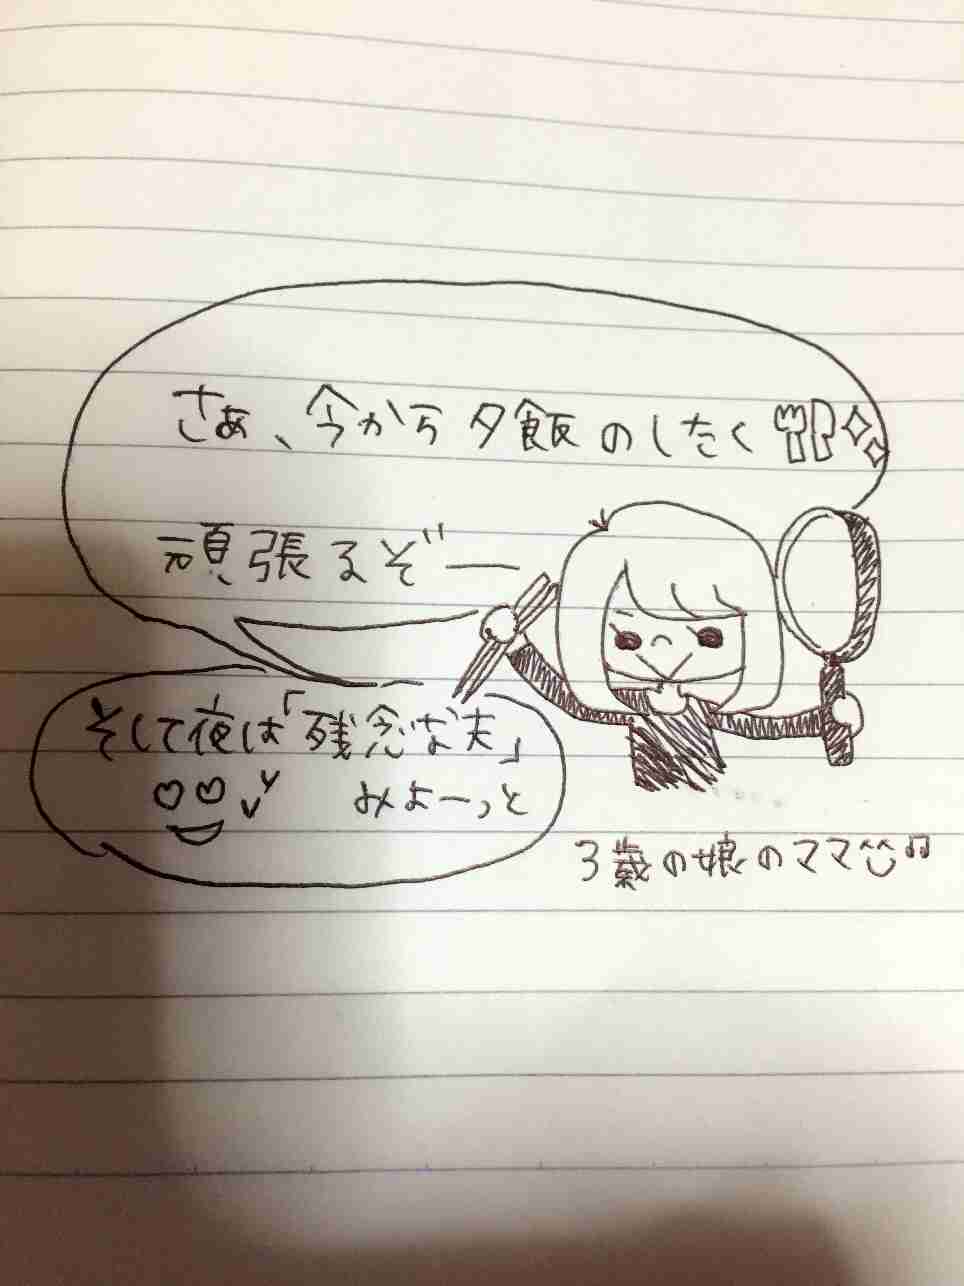 さぁ、今から夕飯のしたく
頑張るぞー
そして夜は「残念な夫」
みよーっと
3歳の娘のママ